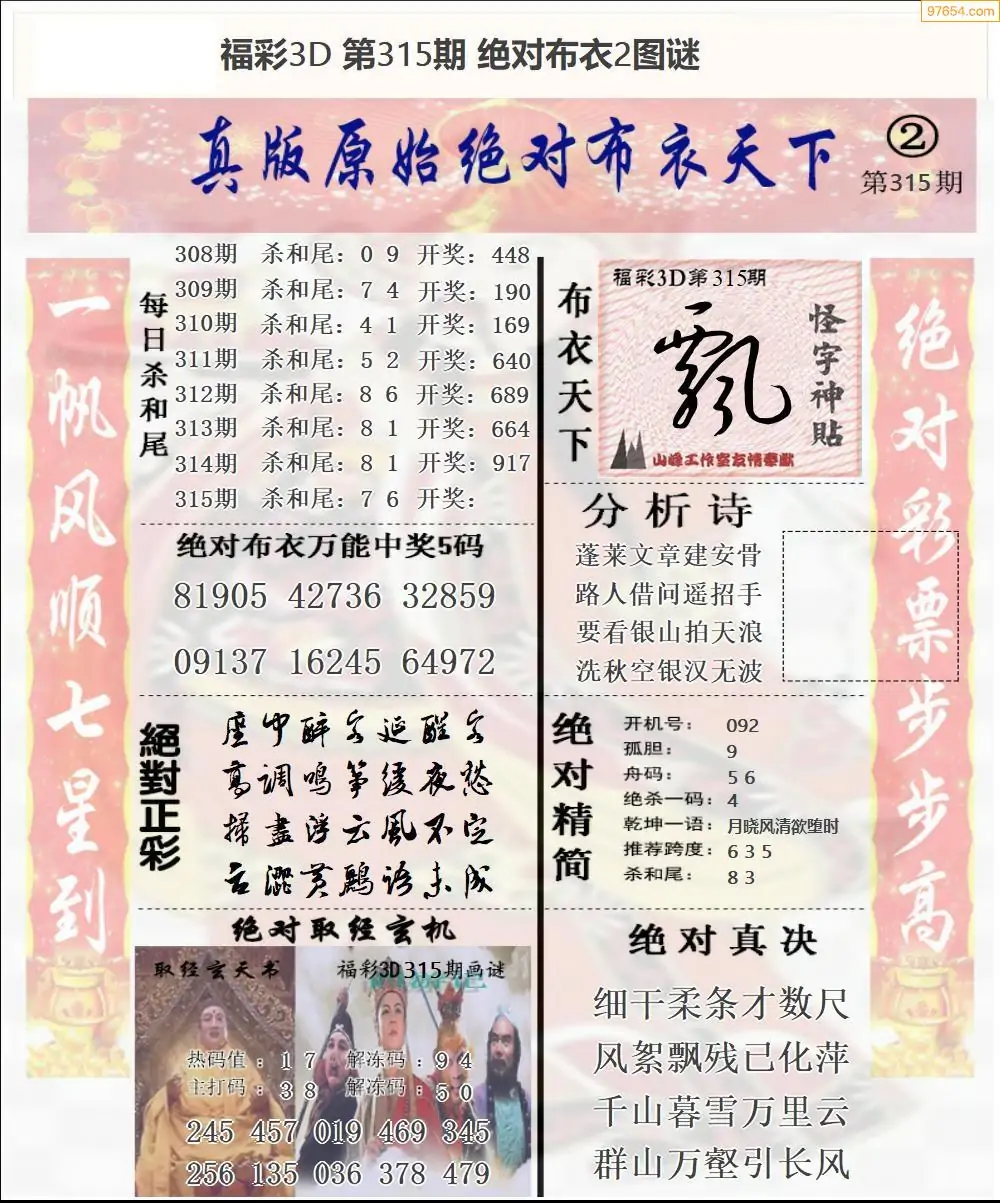 97654.com
福彩3D 第315期 绝对布衣2图谜
真版原始绝对布衣天下
②
第315期
一帆风顺七星到
每日杀和尾
308期 杀和尾：0 9 开奖：448
309期 杀和尾：7 4 开奖：190
310期 杀和尾：4 1 开奖：169
311期 杀和尾：5 2 开奖：640
312期 杀和尾：8 6 开奖：689
313期 杀和尾：8 1 开奖：664
314期 杀和尾：8 1 开奖：917
315期 杀和尾：7 6 开奖：
绝对布衣万能中奖5码
81905 42736 32859
09137 16245 64972
絕對正彩
座中醉客延醒客
高调鸣筝缓夜愁
掃盡浮云風不定
言澀黄鸝语未成
绝对取经玄机
取经玄天书
福彩3D315期画谜
热码值：1 7 解冻码：9 4
主打码：3 8 解冻码：5 0
245 457 019 469 345
256 135 036 378 479
布衣天下
福彩3D第315期
飘
怪字神貼
山峰工作室友情奉献
分析诗
蓬莱文章建安骨
路人借问遥招手
要看银山拍天浪
洗秋空银汉无波
绝对精简
开机号：092
孤胆：9
舟码：5 6
绝杀一码：4
乾坤一语：月晓风清欲堕时
推荐跨度：6 3 5
杀和尾：8 3
绝对真决
细干柔条才数尺
风絮飘残已化萍
千山暮雪万里云
群山万壑引长风
绝对彩票步步高